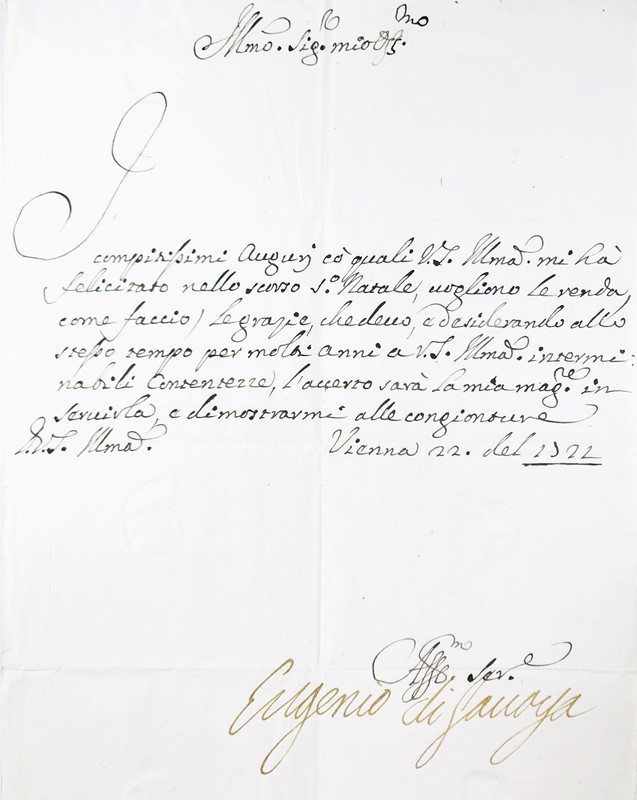 Illmo. Sig.re mio Oss.mo
I
compitissimi Augurj cò quali V.S. Illma. mi hà
felicitato nello scorso S.o Natale, vogliono le renda,
come faccio) le grazie, che devo, e desiderando allo
stesso tempo per molti anni a V.S. Illma. intermi:
nabili Contentezze, l'accerto sarà la mia mag.re in
servirla, e dimostrarmi alle congionture
D.V.S. Illma. Vienna 22. del 1722
Aff.mo Ser.e
Eugenio di Savoya